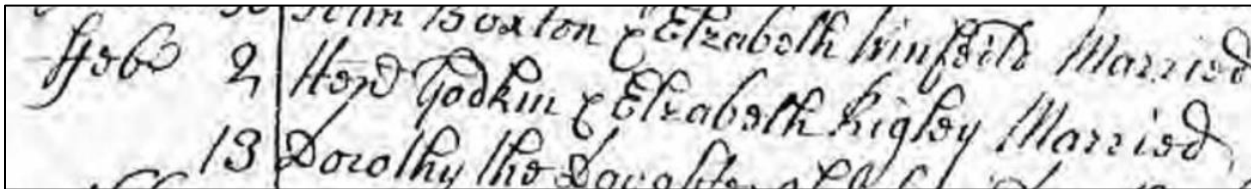 John Boxton & Elizabeth Winfeild Married
ffeb 2 Hen Godkin & Elizabeth Rigley Married
13 Dorothy the Daughter